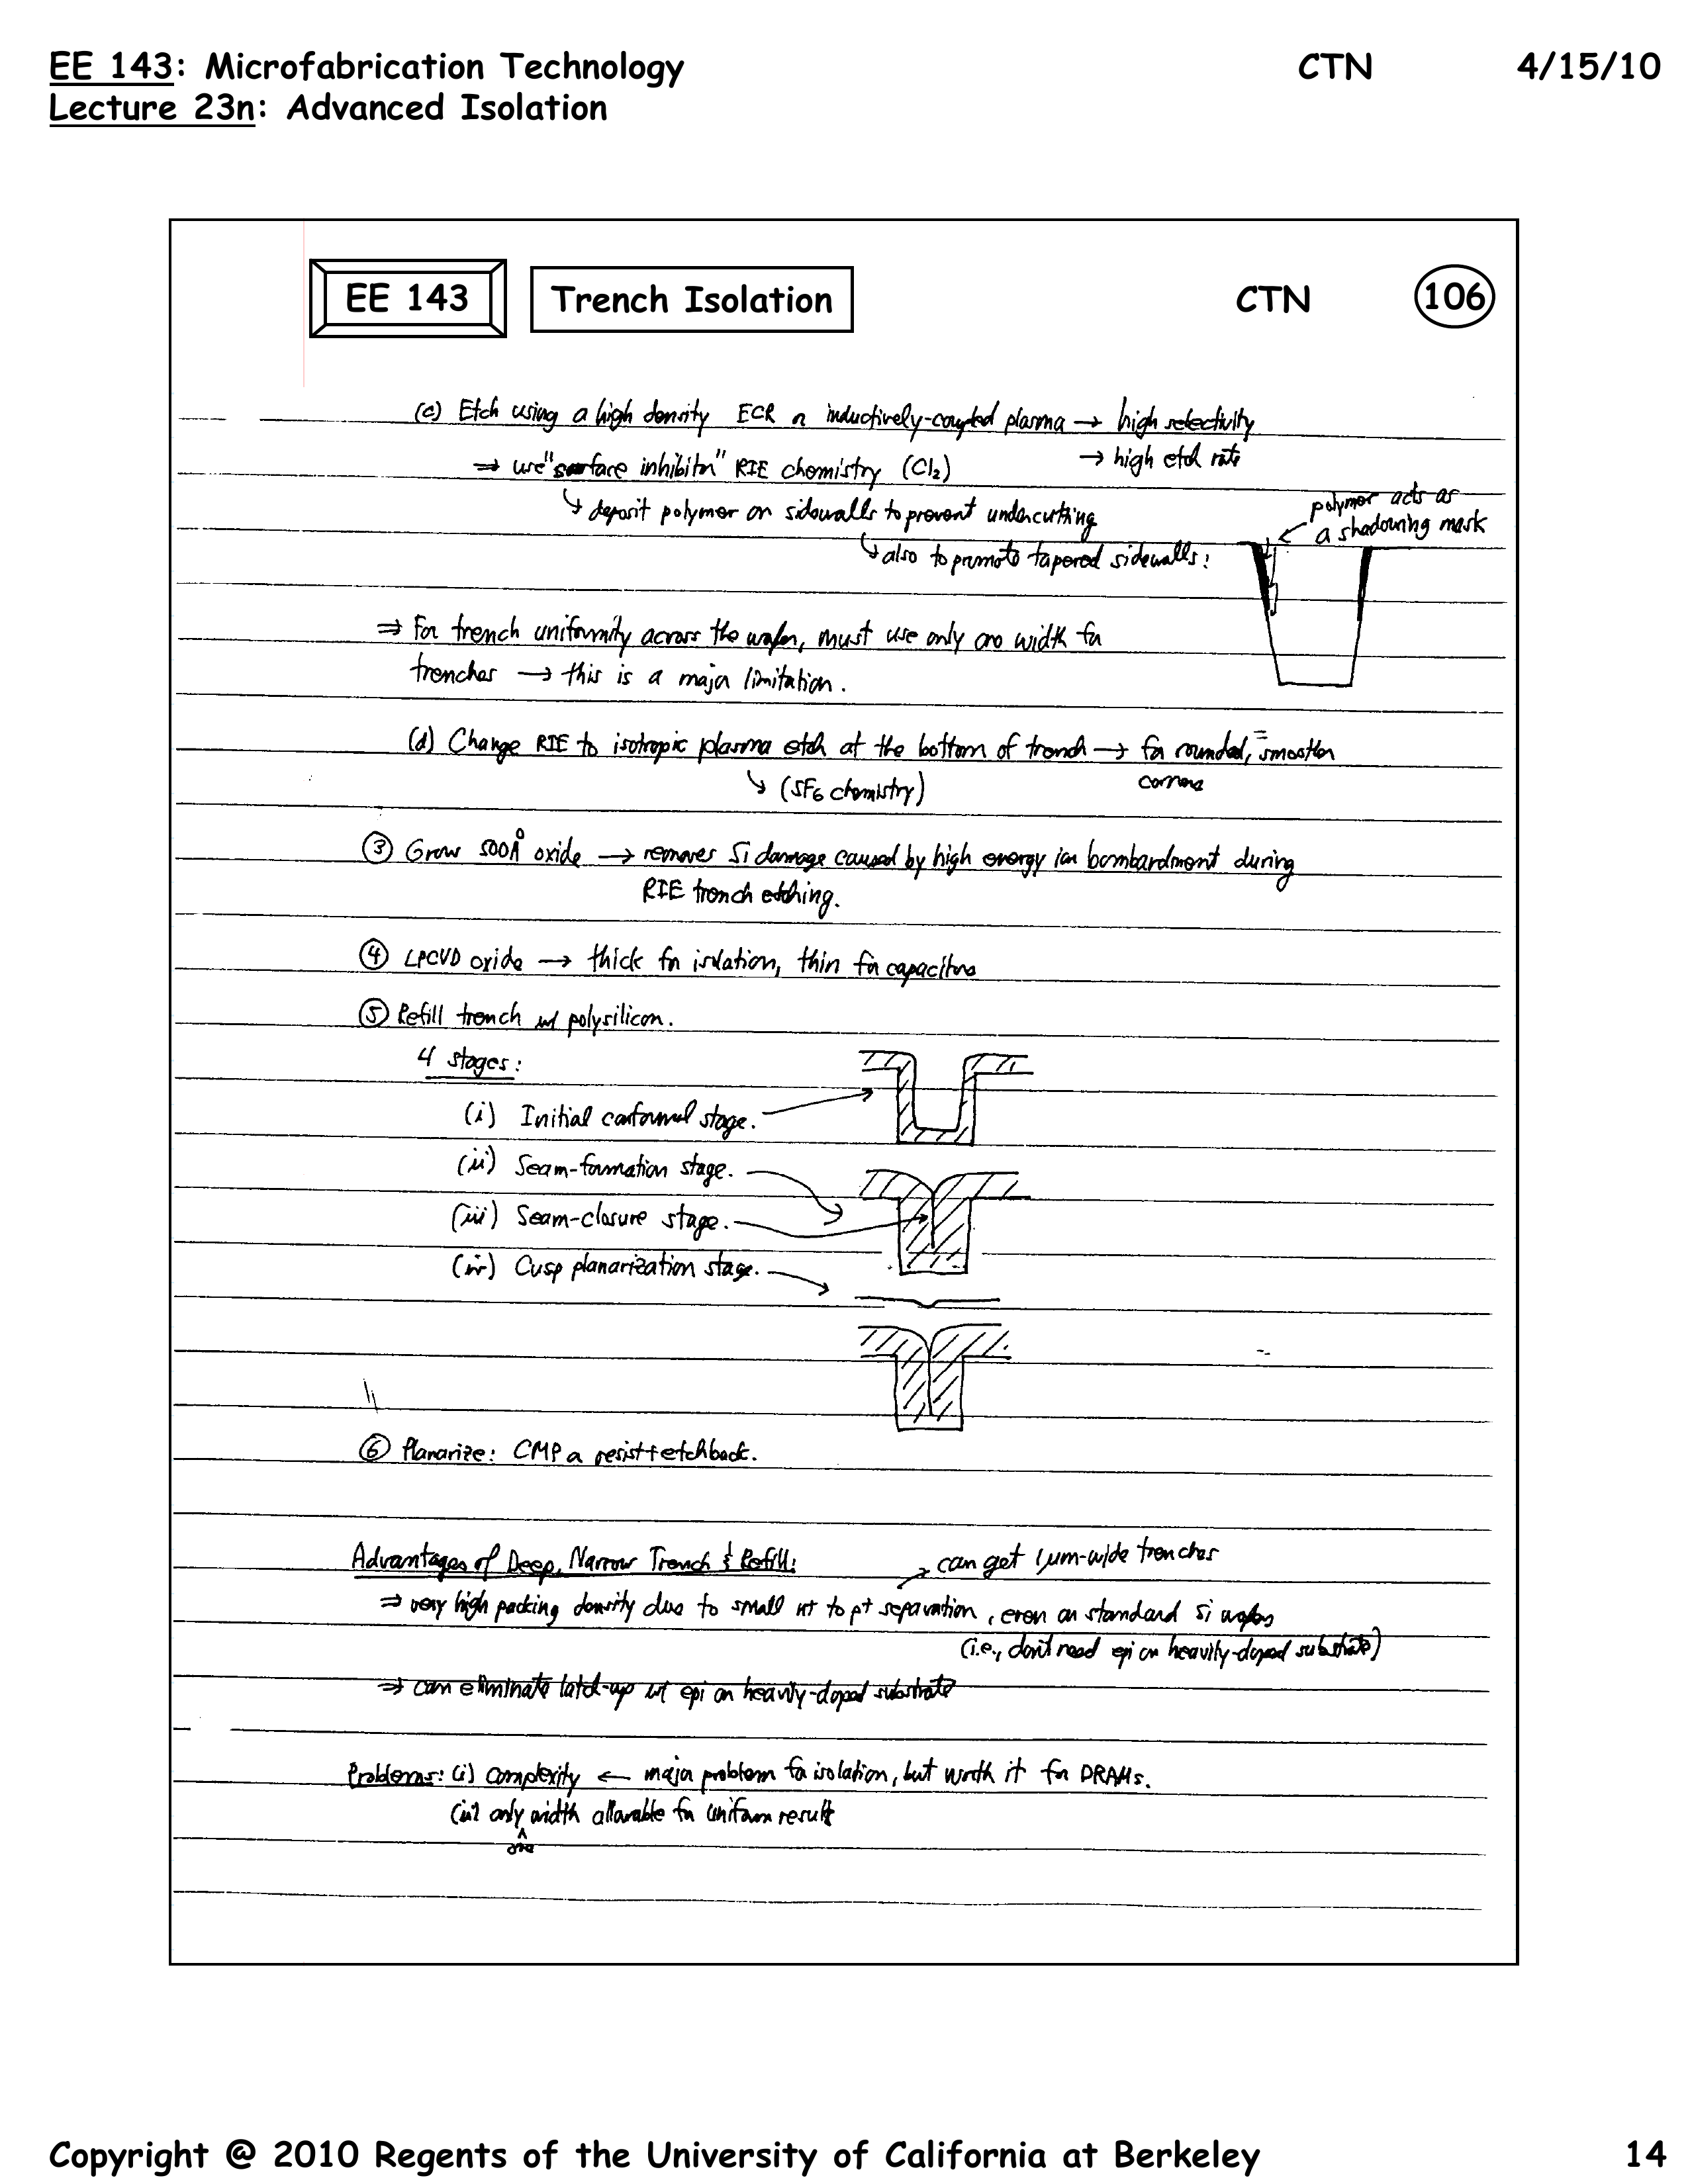 EE 143: Microfabrication Technology CTN 4/15/10
Lecture 23n: Advanced Isolation
EE 143 Trench Isolation CTN 106
(c) Etch using a high density ECR or inductively-coupled plasma → high selectivity
→ high etch rate
⇒ use "surface inhibitor" RIE chemistry (Cl₂)
↳ deposit polymer on sidewalls to prevent undercutting
↳ also to promote tapered sidewalls:
polymer acts as
a shadowing mask
⇒ For trench uniformity across the wafer, must use only one width for
trenches → this is a major limitation.
(d) Change RIE to isotropic plasma etch at the bottom of trench → for rounded, smoother
corners
↳ (SF₆ chemistry)
③ Grow 500Å oxide → removes Si damage caused by high energy ion bombardment during
RIE trench etching.
④ LPCVD oxide → thick for isolation, thin for capacitors
⑤ Refill trench w/ polysilicon.
4 stages:
(i) Initial conformal stage.
(ii) Seam-formation stage.
(iii) Seam-closure stage.
(iv) Cusp planarization stage.
⑥ Planarize: CMP or resist+etchback.
Advantages of Deep, Narrow Trench & Refill:
→ can get 1μm-wide trenches
⇒ very high packing density due to small n+ to p+ separation, even on standard Si wafers
(i.e., don't need epi on heavily-doped substrate)
⇒ can eliminate latch-up w/ epi on heavily-doped substrate
Problems: (i) complexity ← major problem for isolation, but worth it for DRAMs.
(ii) only one width allowable for uniform result
Copyright @ 2010 Regents of the University of California at Berkeley 14